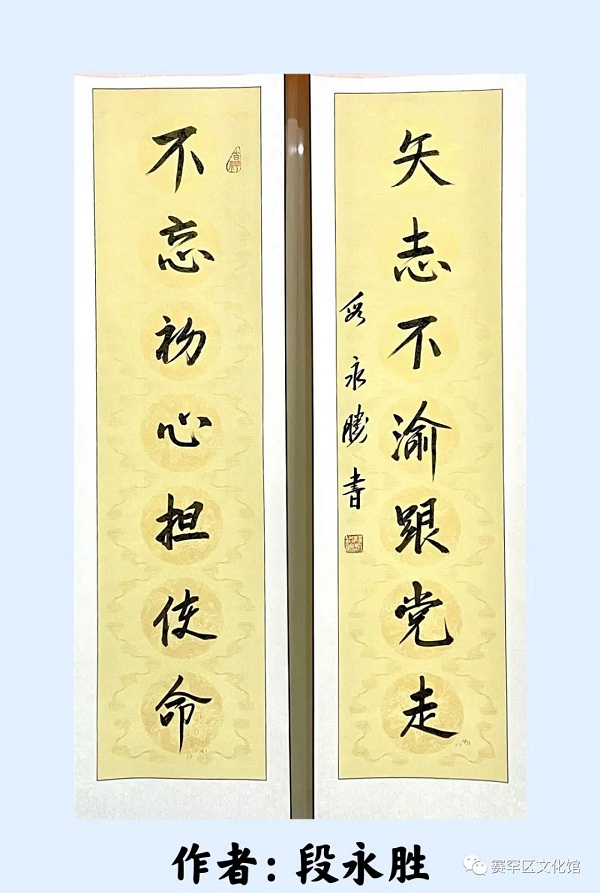 不忘初心担使命
矢志不渝跟党走
段永勝書
作者：段永胜
赛罕区文化馆